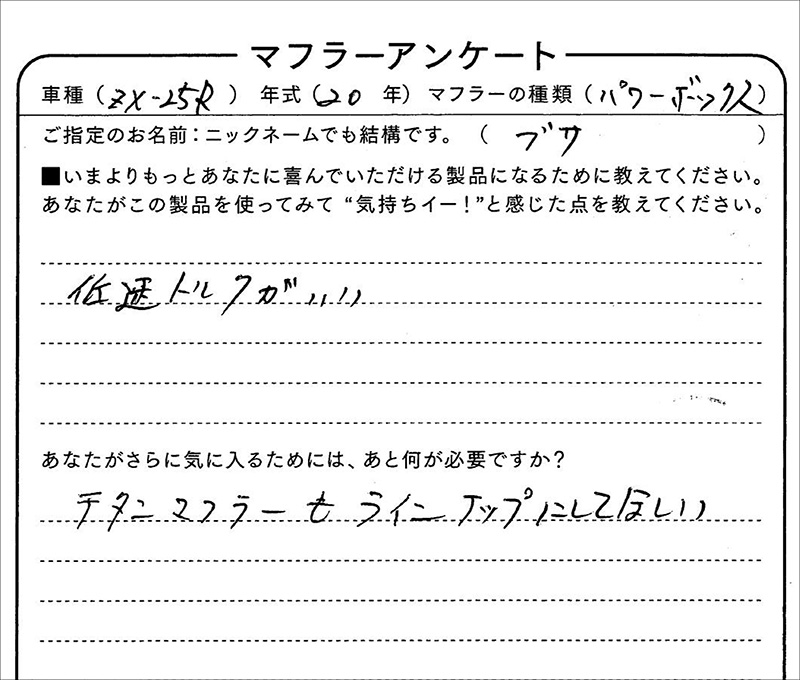 マフラーアンケート
車種（ZX-25R） 年式（20 年） マフラーの種類（パワーボックス）
ご指定のお名前：ニックネームでも結構です。（ブサ）
■いまよりもっとあなたに喜んでいただける製品になるために教えてください。
あなたがこの製品を使ってみて“気持ちイー！”と感じた点を教えてください。
低速トルクがいい
あなたがさらに気に入るためには、あと何が必要ですか？
チタンマフラーもラインナップにしてほしい